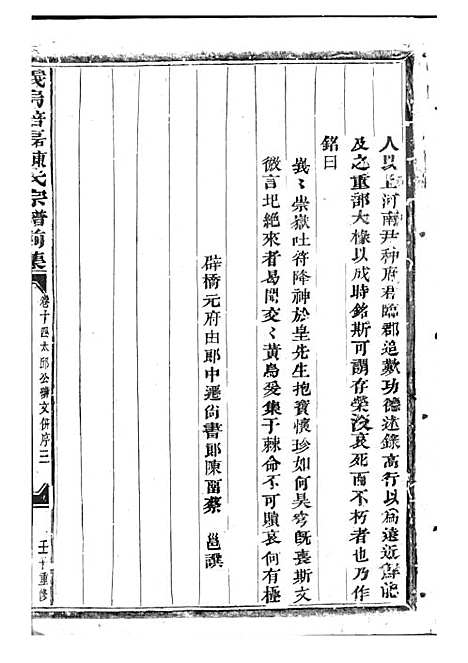 人以上河南尹种府君臨郡追歎功德述錄高行以為遠近鮮能
及之重部大掾以成時銘斯可謂存榮沒哀死而不朽者也乃作
銘曰
峩〻崇嶽吐符降神於皇先生抱寳懷珍如何昊穹旣喪斯文
微言圮絶來者曷聞交〻黃鳥爰集于棘命不可贖哀何有極
辟橋元府由郎中遷尙書郎陳畱蔡 邕譔
義烏倍磊陳氏宗譜前集
卷十四太邱公碑文併序 三
壬 重修